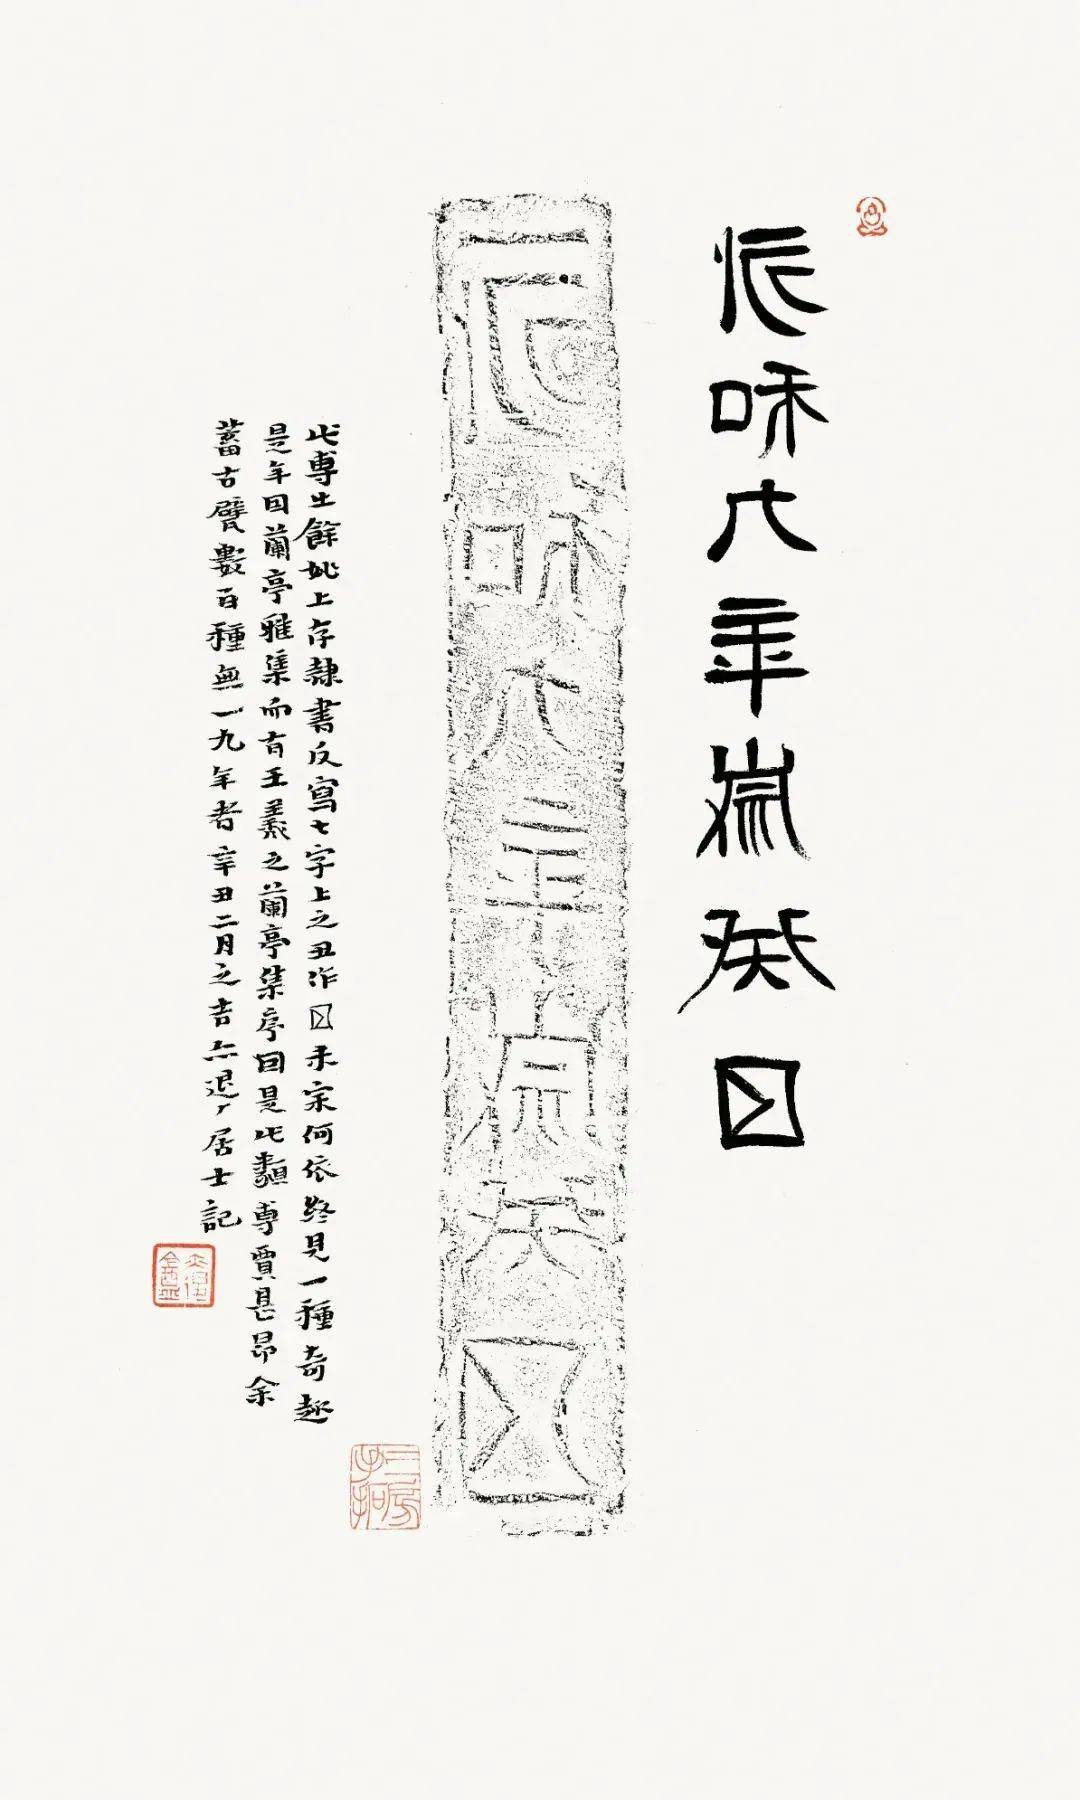 永和九年歲癸丑
此專出餘姚上存隸書反寫七字上之丑作未案何依終見一種奇趣
是年因蘭亭雅集而有王羲之蘭亭集序因是此類專賈甚昂余
蓄古甓數百種無一九年者辛丑二月之吉亦退厂居士記